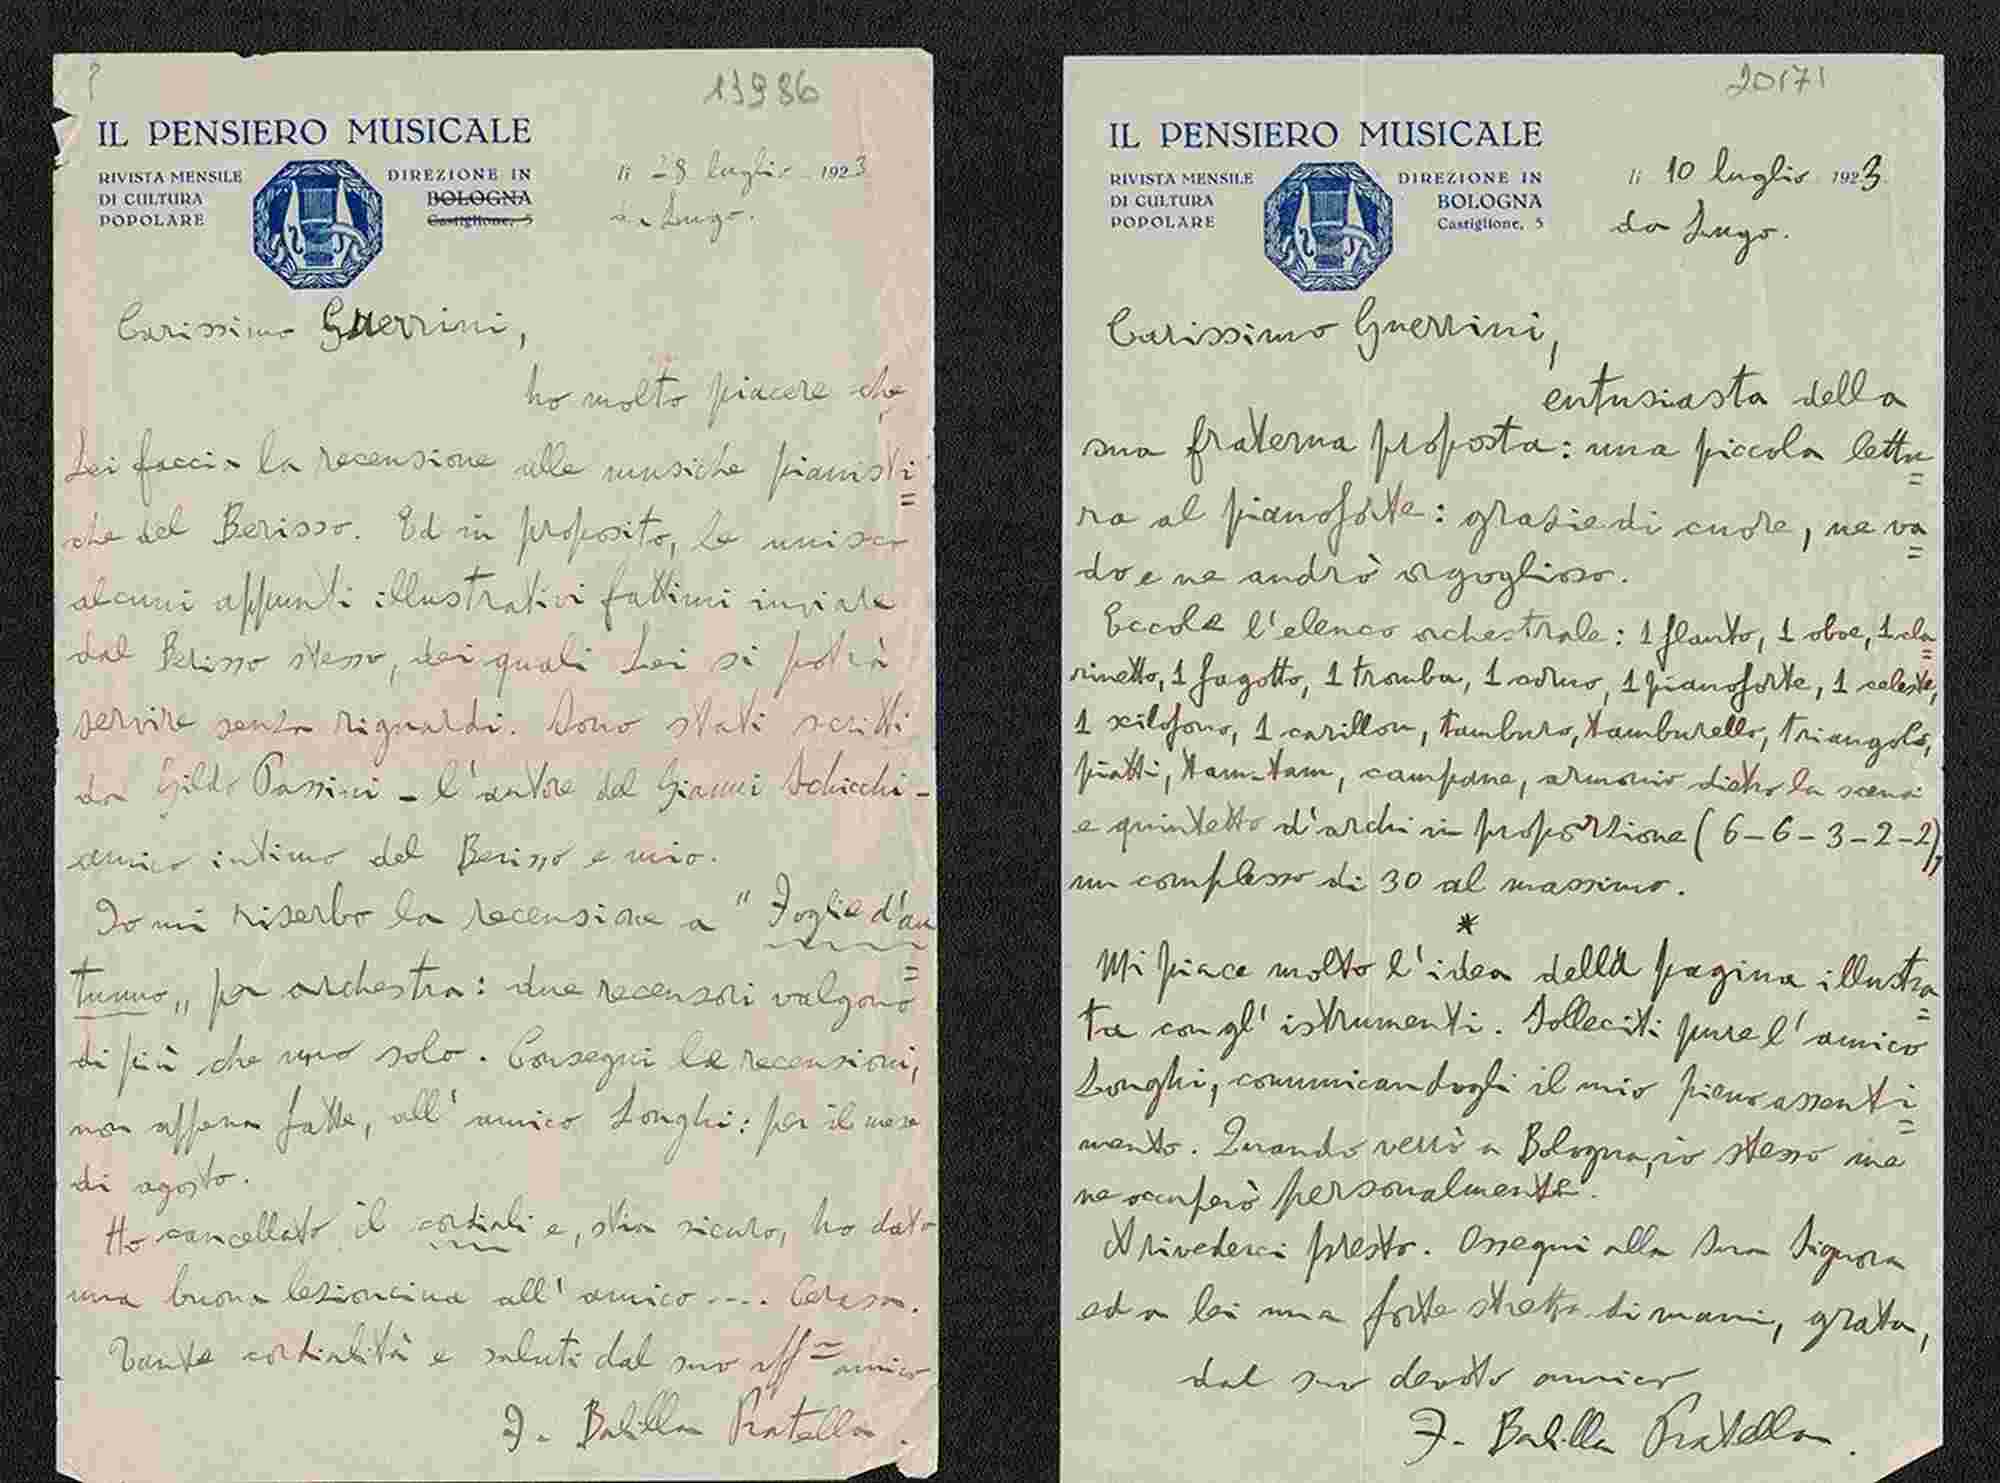 ?
13986
IL PENSIERO MUSICALE
RIVISTA MENSILE
DI CULTURA
POPOLARE
DIREZIONE IN
BOLOGNA
Castiglione, 5
li 28 luglio 1923
da Lugo.
Carissimo Guerrini,
ho molto piacere che
Lei faccia la recensione alle musiche pianisti=
che del Berisso. Ed in proposito, Le unisco
alcuni appunti illustrativi fattimi inviare
dal Berisso stesso, dei quali Lei si potrà
servire senza riguardi. Sono stati scritti
da Gildo Passini - l'autore del Gianni Schicchi -
amico intimo del Berisso e mio.
Io mi riserbo la recensione a "Foglie d'au=
tunno„ per orchestra: due recensori valgono
di più che uno solo. Consegni le recensioni,
non appena fatte, all'amico Longhi: per il mese
di agosto.
Ho cancellato il cordiali e, stia sicuro, ho dato
una buona lezioncina all'amico .... Cerasa.
Tante cordialità e saluti dal suo aff= amico
F. Balilla Pratella.
20171
IL PENSIERO MUSICALE
RIVISTA MENSILE
DI CULTURA
POPOLARE
DIREZIONE IN
BOLOGNA
Castiglione, 5
li 10 luglio 1923.
da Lugo.
Carissimo Guerrini,
entusiasta della
sua fraterna proposta: una piccola lettu=
ra al pianoforte: grazie di cuore, ne va=
do e ne andrò orgoglioso.
Eccole l'elenco orchestrale: 1 flauto, 1 oboe, 1 cla=
rinetto, 1 fagotto, 1 tromba, 1 corno, 1 pianoforte, 1 celeste,
1 xilofono, 1 carillon, tamburo, tamburello, triangolo,
piatti, tam-tam, campane, armonio dietro la scena
e quintetto d'archi in proporzione (6-6-3-2-2),
un complesso di 30 al massimo.
*
Mi piace molto l'idea della pagina illustra=
ta con gl'istrumenti. Solleciti pure l'amico
Longhi, comunicandogli il mio pieno assenti=
mento. Quando verrò a Bologna, io stesso me
ne occuperò personalmente.
A rivederci presto. Ossequi alla Sua Signora
ed a lei una forte stretta di mani, grata,
dal suo devoto amico
F. Balilla Pratella.